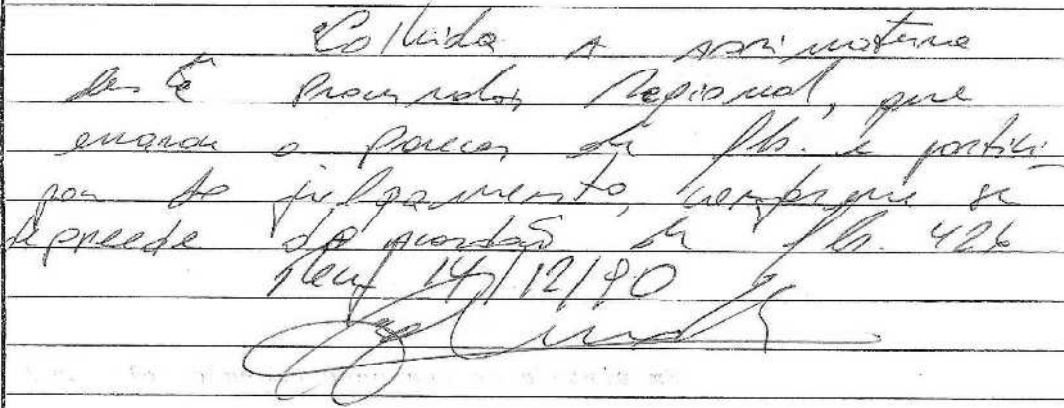 Colhida a assinatura
deste Procurador Regional, que
exarou o parecer de fls. e partici
pou do julgamento, conforme se
depreende do acordão de fls. 426
14/12/90